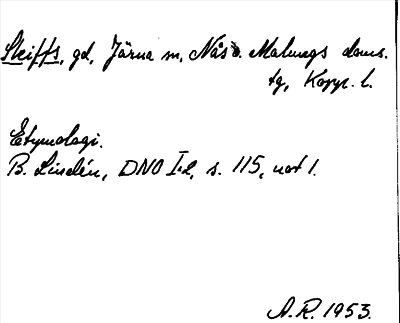 Skeiffs, gd, Järna sn, Nås o. Malungs doms.
tg, Kopp. l.
Etymologi.
B. Lindén, DNO I:2, s. 115, not 1.
A.R. 1953.